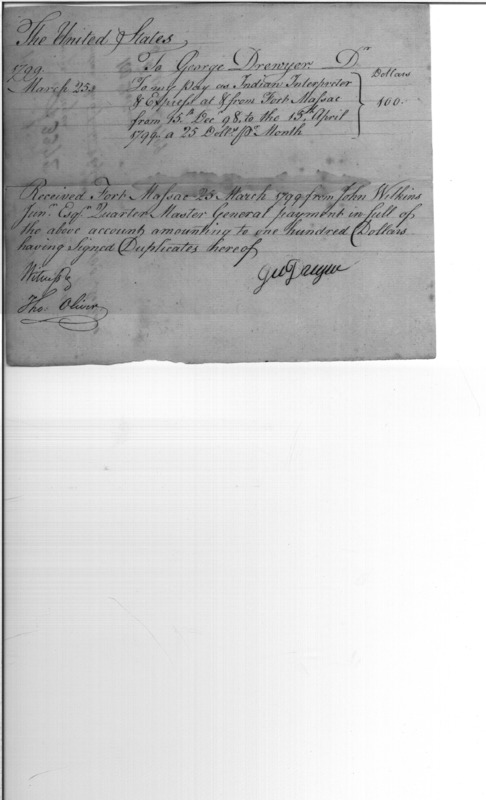 The United States
To George Drewyer Dr
Dollars
1799
March 25th To my pay as Indian Interpretor
& Express at & from Fort Massac 100.
from 15th Decr 98, to the 15th April
1799 a 25 Dollrs pr Month
Received Fort Massac 25 March 1799 from John Wilkins
Junr Esqr Quarter Master General payment in full of
the above account, amounting to one hundred Dollars
having signed Duplicates hereof
Witness
Geo Drewyer
Thos Oliver